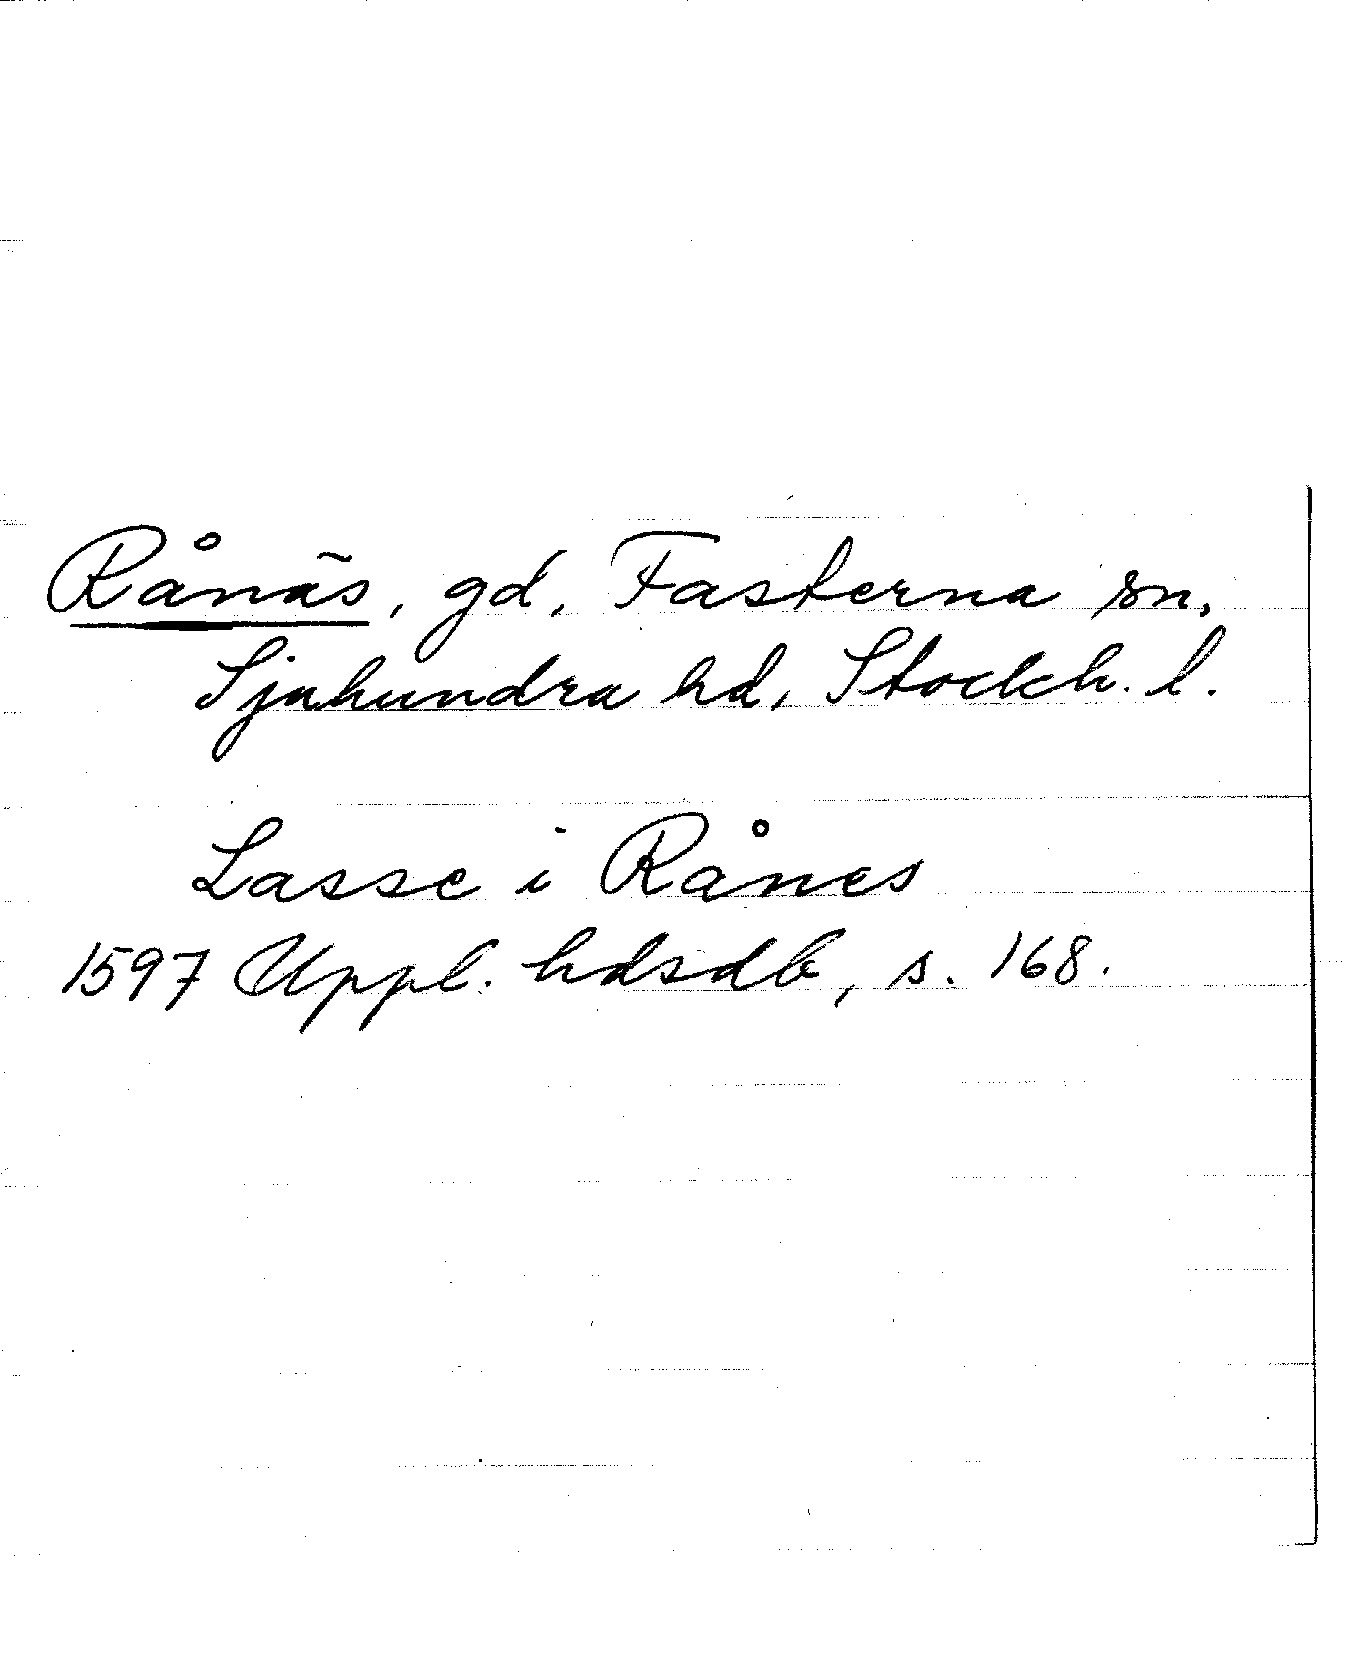 Rånäs, gd, Fasterna sn,
Sjuhundra hd, Stockh. l.
Lasse i Rånes
1597 Uppl. hdsdb, s. 168.